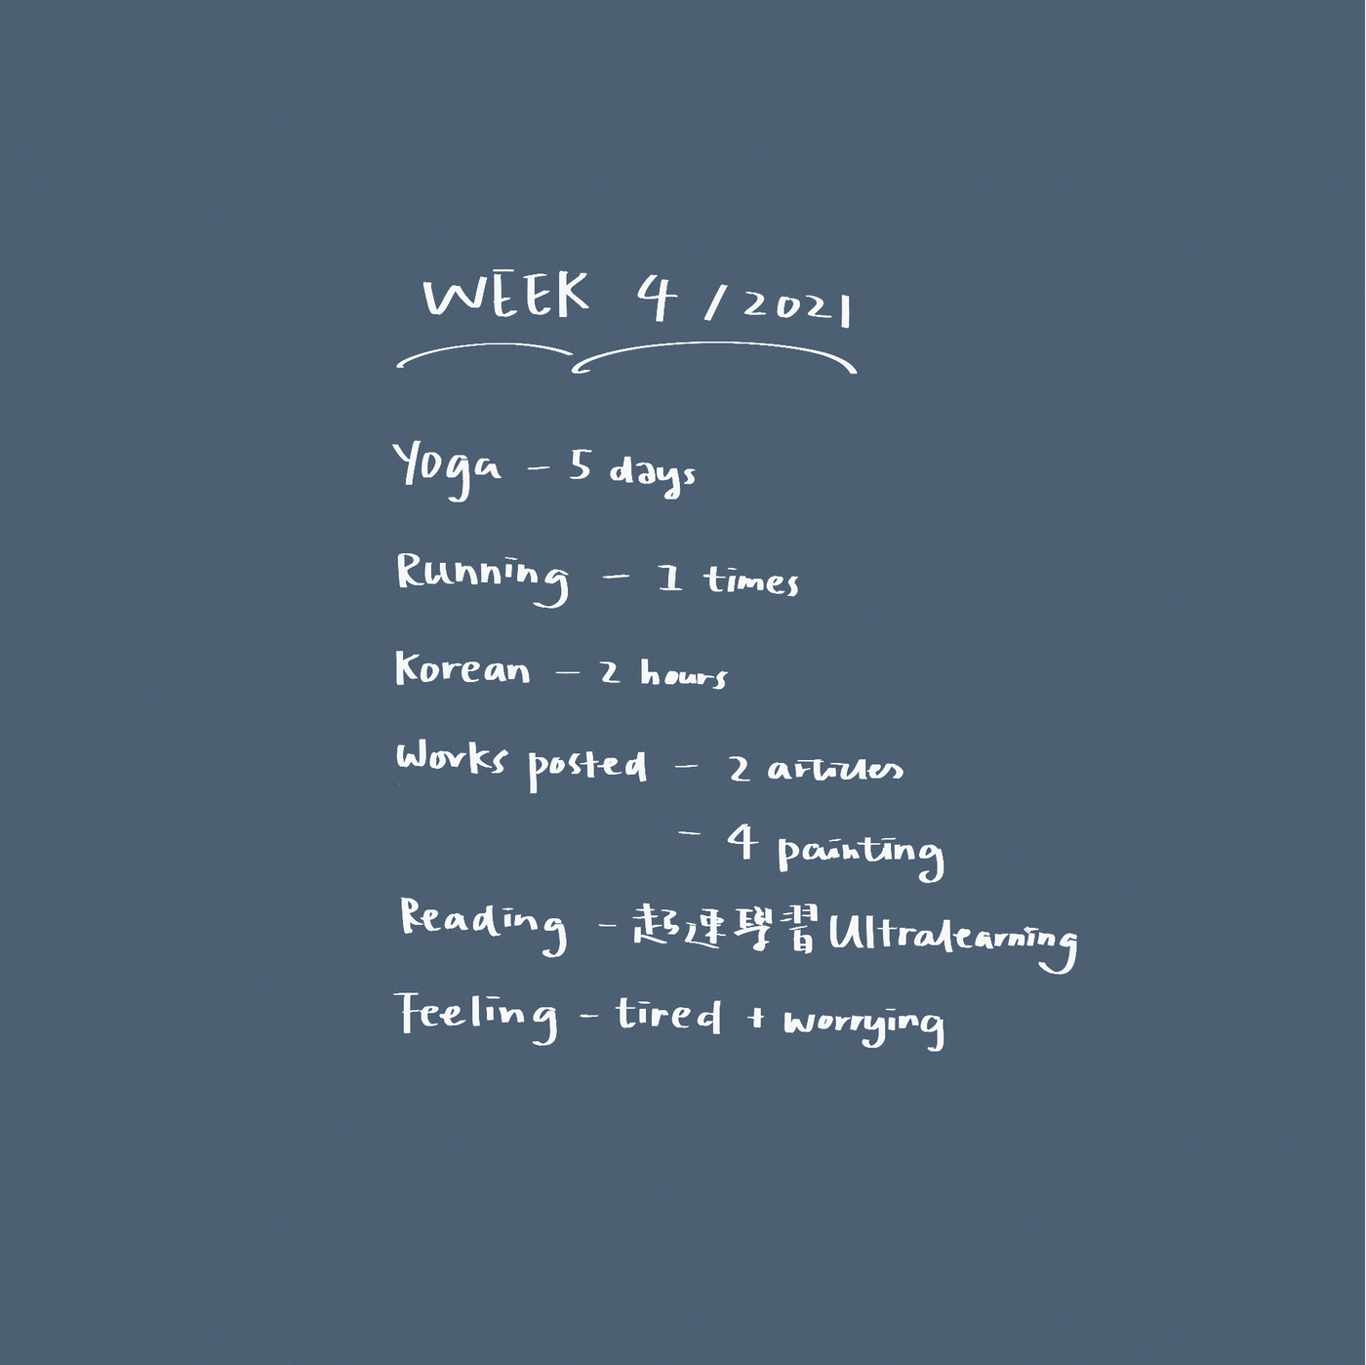 WEEK 4 / 2021
Yoga - 5 days
Running - 1 times
Korean - 2 hours
Works posted - 2 articles
- 4 painting
Reading - 超速學習 Ultralearning
Feeling - tired + worrying